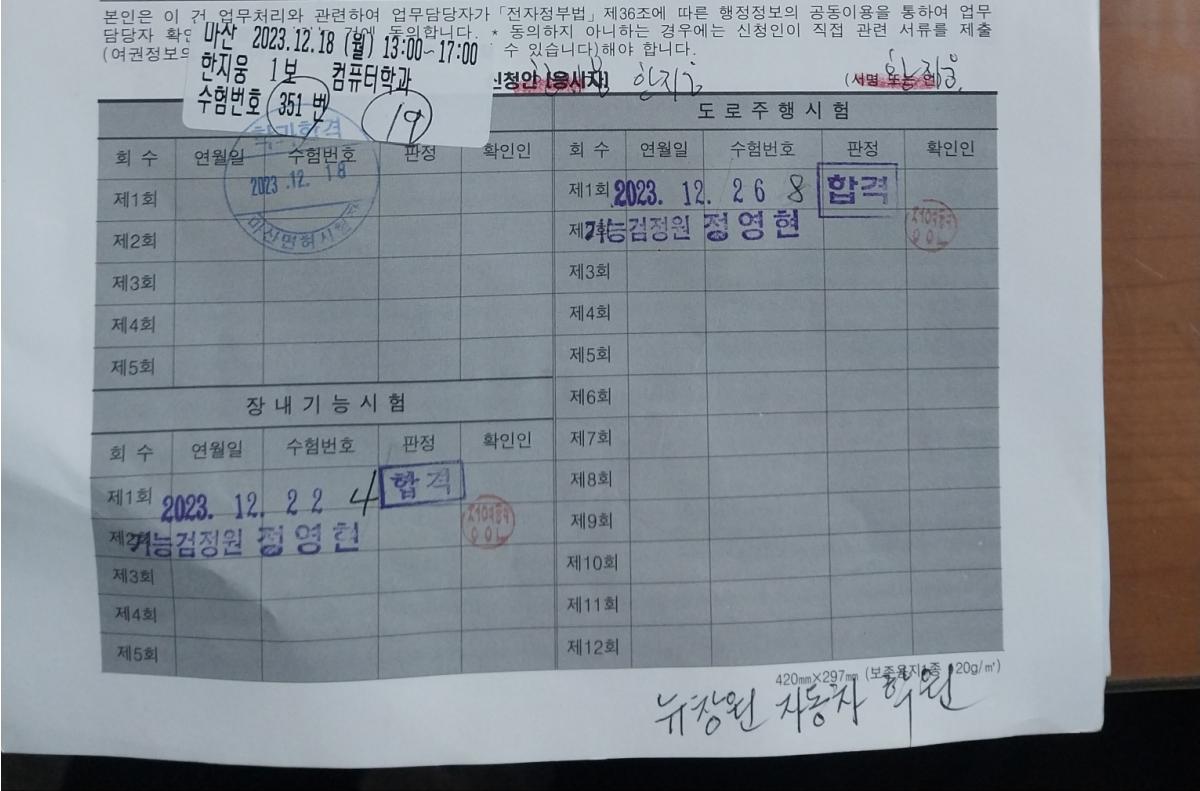 본인은 이 건 업무처리와 관련하여 업무담당자가 「전자정부법」 제36조에 따른 행정정보의 공동이용을 통하여 업무
담당자 확인 것에 동의합니다. * 동의하지 아니하는 경우에는 신청인이 직접 관련 서류를 제출
(여권정보의 수 있습니다)해야 합니다.
마산 2023.12.18 (월) 13:00~17:00
한지웅 1보 컴퓨터학과
수험번호 351 번 19
신청인 (응시자) 한지웅 (서명 또는 인)
학과합격
2023.12. 18
마산면허시험
회 수 연월일 수험번호 판정 확인인
제1회
제2회
제3회
제4회
제5회
장내기능시험
회 수 연월일 수험번호 판정 확인인
제1회 2023. 12. 22 4 합격
제2회 기능검정원 정영현
제3회
제4회
제5회
도로주행시험
회 수 연월일 수험번호 판정 확인인
제1회 2023. 12. 26 8 합격
제2회 기능검정원 정영현
제3회
제4회
제5회
제6회
제7회
제8회
제9회
제10회
제11회
제12회
420㎜×297㎜ (보존용지1종 120g/㎡)
뉴창원 자동차 학원